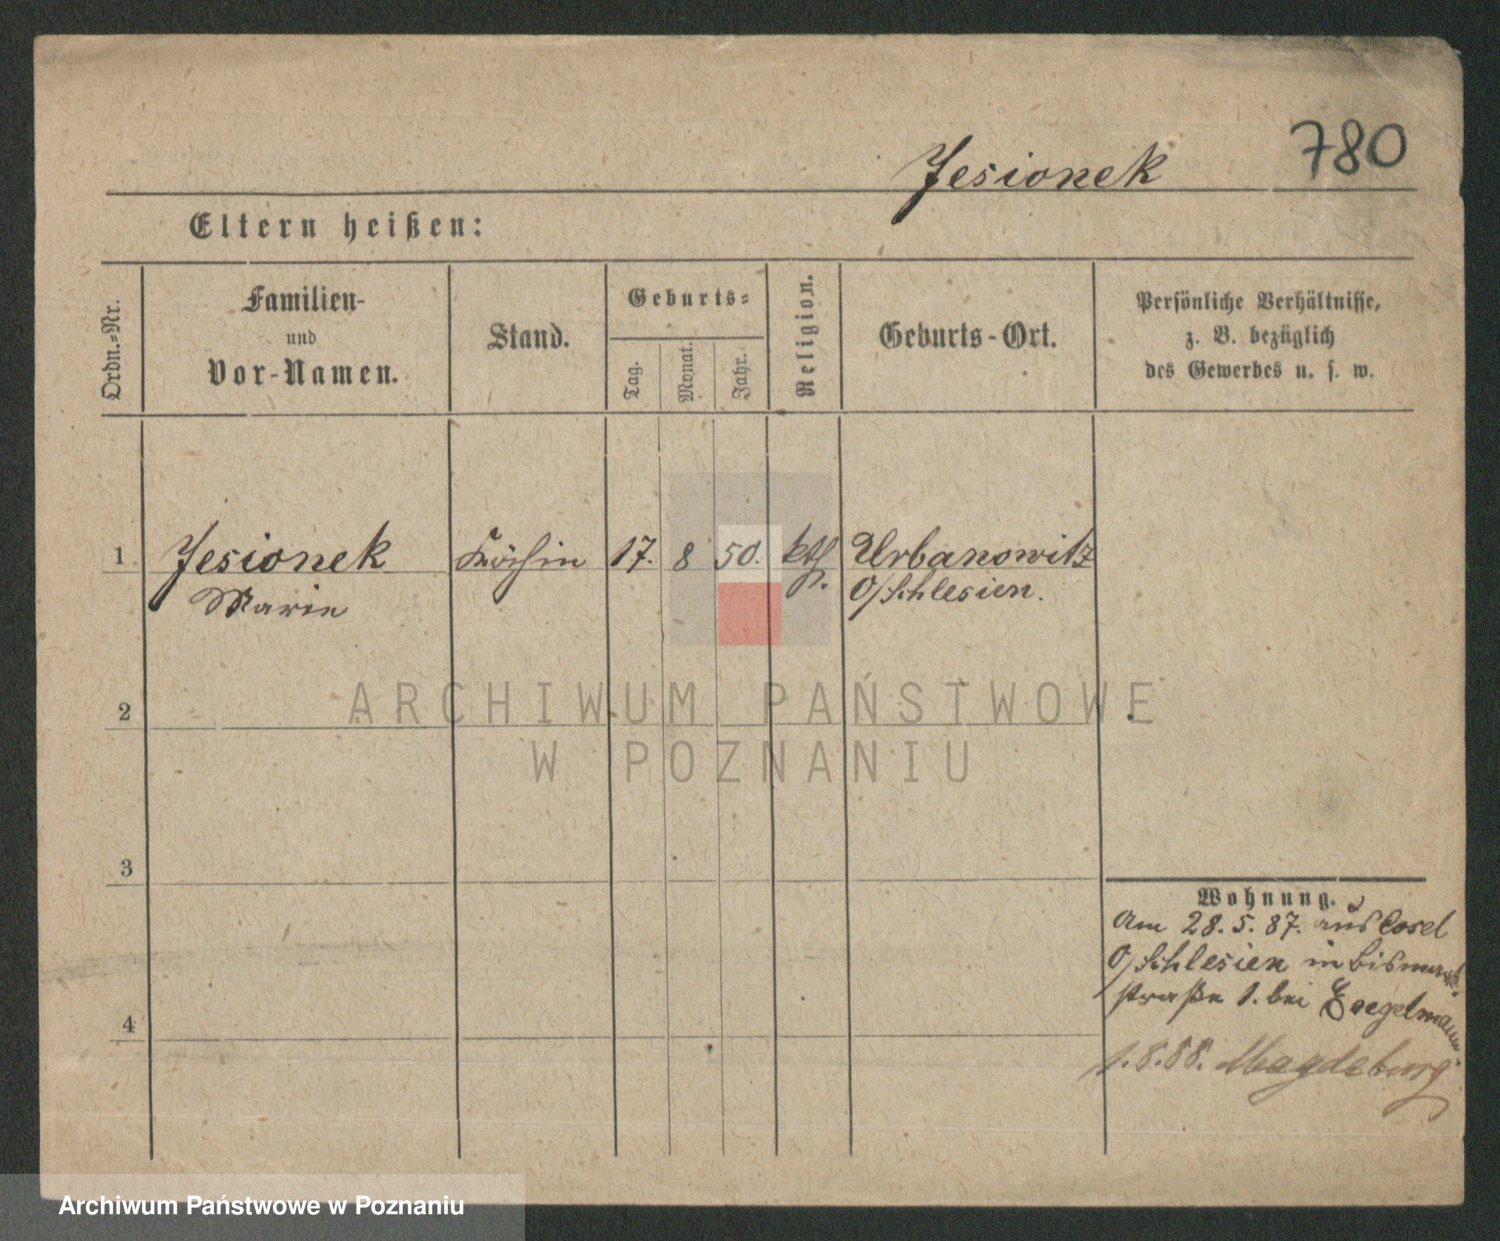 780
Jesionek
Eltern heißen:
Ordn.-Nr.
Familien-
und
Vor-Namen.
Stand.
Geburts-
Tag.
Monat.
Jahr.
Religion.
Geburts-Ort.
Persönliche Verhältnisse,
z. B. bezüglich
des Gewerbes u. s. w.
1 Jesionek Köchin 17. 8 50. kth. Urbanowitz
Marie O/Schlesien.
2
3
4
Wohnung.
Am 28.5.87. aus Cosel
O/Schlesien in Bismark-
straße 1. bei
1.8.88. Magdeburg
ARCHIWUM PAŃSTWOWE
W POZNANIU
Archiwum Państwowe w Poznaniu